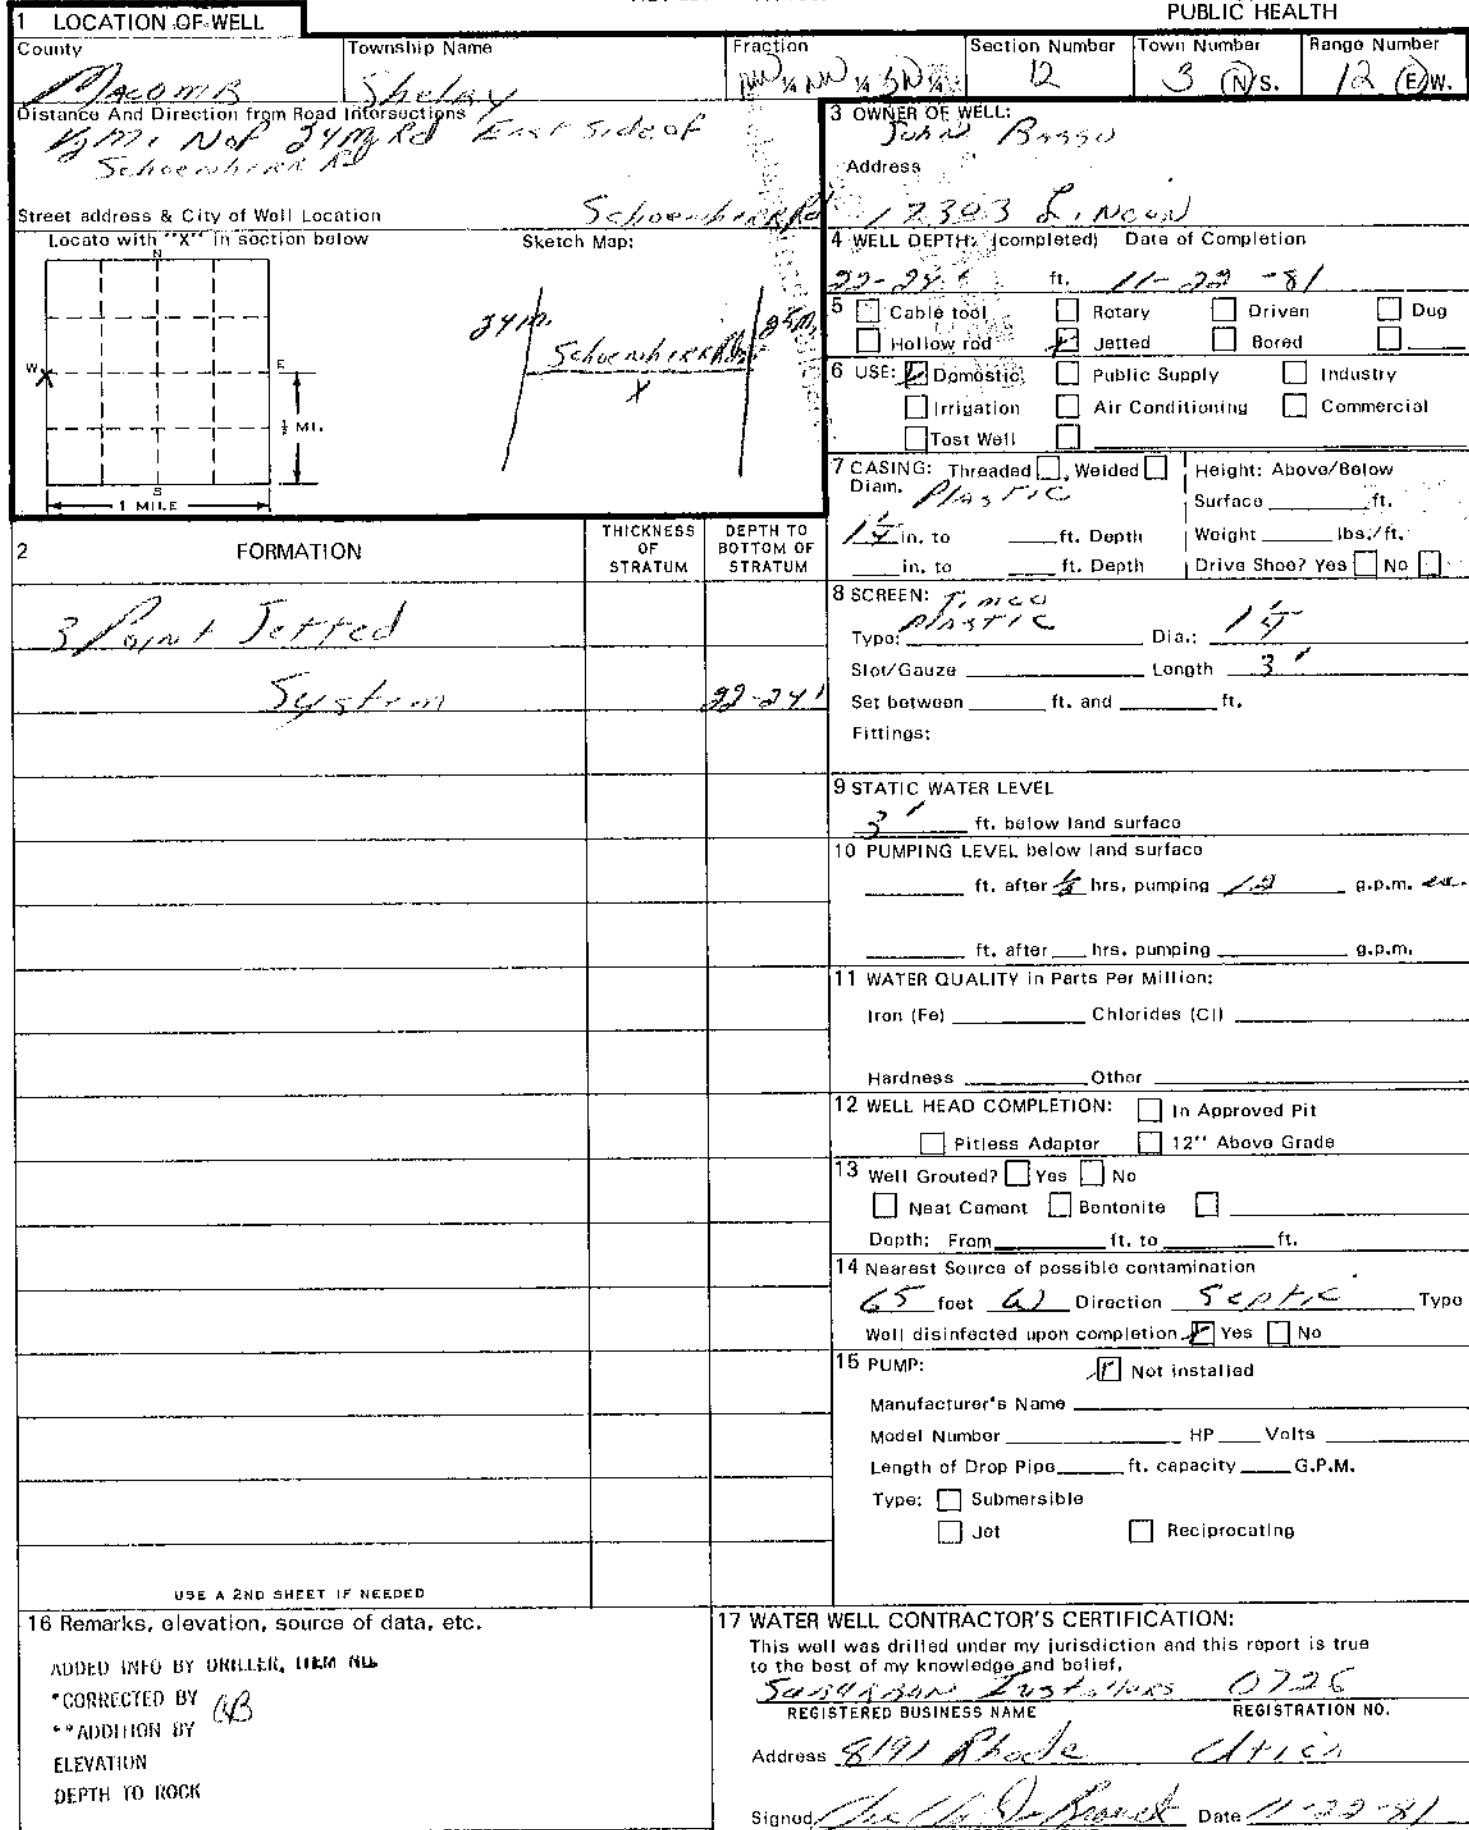 PUBLIC HEALTH
1 LOCATION OF WELL
County Township Name Fraction Section Number Town Number Range Number
Macomb Shelby NW ¼ NW ¼ SW ¼ 12 3 N/S. 12 E/W.
Distance And Direction from Road Intersections
½ Mi. N of 24 Mi Rd East Side of
Schoenherr Rd
Street address & City of Well Location Schoenherr Rd
Locate with "X" in section below Sketch Map:
N
W X E
½ MI.
S
1 MILE
24 Mi. Schoenherr Rd 25 Mi.
X
3 OWNER OF WELL:
John Basso
Address
17303 Lincon
4 WELL DEPTH: (completed) Date of Completion
22-24 ft. 11-22-81
5 Cable tool Rotary Driven Dug
Hollow rod Jetted Bored
6 USE: Domestic Public Supply Industry
Irrigation Air Conditioning Commercial
Test Well
7 CASING: Threaded Welded Height: Above/Below
Diam. Plastic Surface ft.
1¼ in. to ft. Depth Weight lbs./ft.
in. to ft. Depth Drive Shoe? Yes No
2 FORMATION THICKNESS OF STRATUM DEPTH TO BOTTOM OF STRATUM
3 Point Jetted
System 22-24'
USE A 2ND SHEET IF NEEDED
8 SCREEN: Timco
Type: Plastic Dia.: 1¼
Slot/Gauze Length 3'
Set between ft. and ft.
Fittings:
9 STATIC WATER LEVEL
3' ft. below land surface
10 PUMPING LEVEL below land surface
ft. after ½ hrs. pumping 12 g.p.m. ea.
ft. after hrs. pumping g.p.m.
11 WATER QUALITY in Parts Per Million:
Iron (Fe) Chlorides (Cl)
Hardness Other
12 WELL HEAD COMPLETION: In Approved Pit
Pitless Adapter 12" Above Grade
13 Well Grouted? Yes No
Neat Cement Bentonite
Depth: From ft. to ft.
14 Nearest Source of possible contamination
65 feet W Direction Septic Type
Well disinfected upon completion Yes No
15 PUMP: Not installed
Manufacturer's Name
Model Number HP Volts
Length of Drop Pipe ft. capacity G.P.M.
Type: Submersible
Jet Reciprocating
16 Remarks, elevation, source of data, etc.
ADDED INFO BY DRILLER, ITEM NO.
*CORRECTED BY
**ADDITION BY
ELEVATION
DEPTH TO ROCK
17 WATER WELL CONTRACTOR'S CERTIFICATION:
This well was drilled under my jurisdiction and this report is true
to the best of my knowledge and belief.
Suburban Installers 0726
REGISTERED BUSINESS NAME REGISTRATION NO.
Address 8191 Rhode Utica
Signed Date 11-22-81